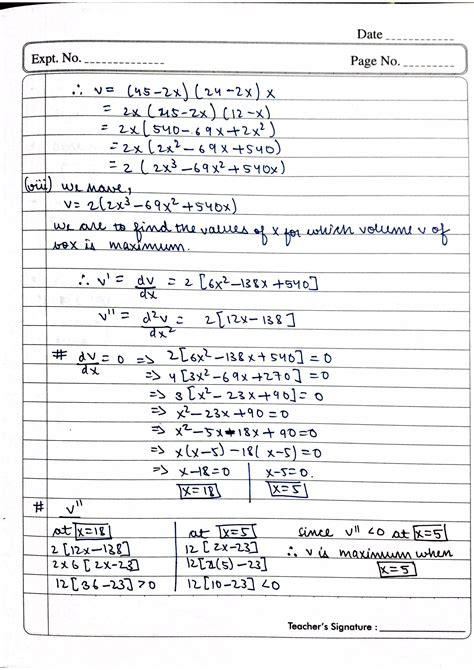 Date
Expt. No.
Page No.
∴ V = (45-2x) (24-2x) x
= 2x (45-2x) (12-x)
= 2x (540-69x+2x²)
= 2x (2x²-69x+540)
= 2 (2x³-69x²+540x)
(viii) we have,
V = 2(2x³-69x²+540x)
we are to find the values of x for which volume v of
box is maximum.
∴ V' = dv/dx = 2 [6x²-138x+540]
V'' = d²v/dx² = 2[12x-138]
# dv/dx = 0 => 2[6x²-138x+540] = 0
=> 4[3x²-69x+270] = 0
=> 3[x²-23x+90] = 0
=> x²-23x+90=0
=> x²-5x-18x+90=0
=> x(x-5)-18(x-5)=0
=> x-18=0 | x-5=0.
x=18 | x=5
# V''
at x=18 | at x=5 since V''<0 at x=5
2[12x-138] | 12[2x-23] ∴ V is maximum when
2x6[2x-23] | 12[2(5)-23] x=5
12[36-23]>0 | 12[10-23]<0
Teacher's Signature :